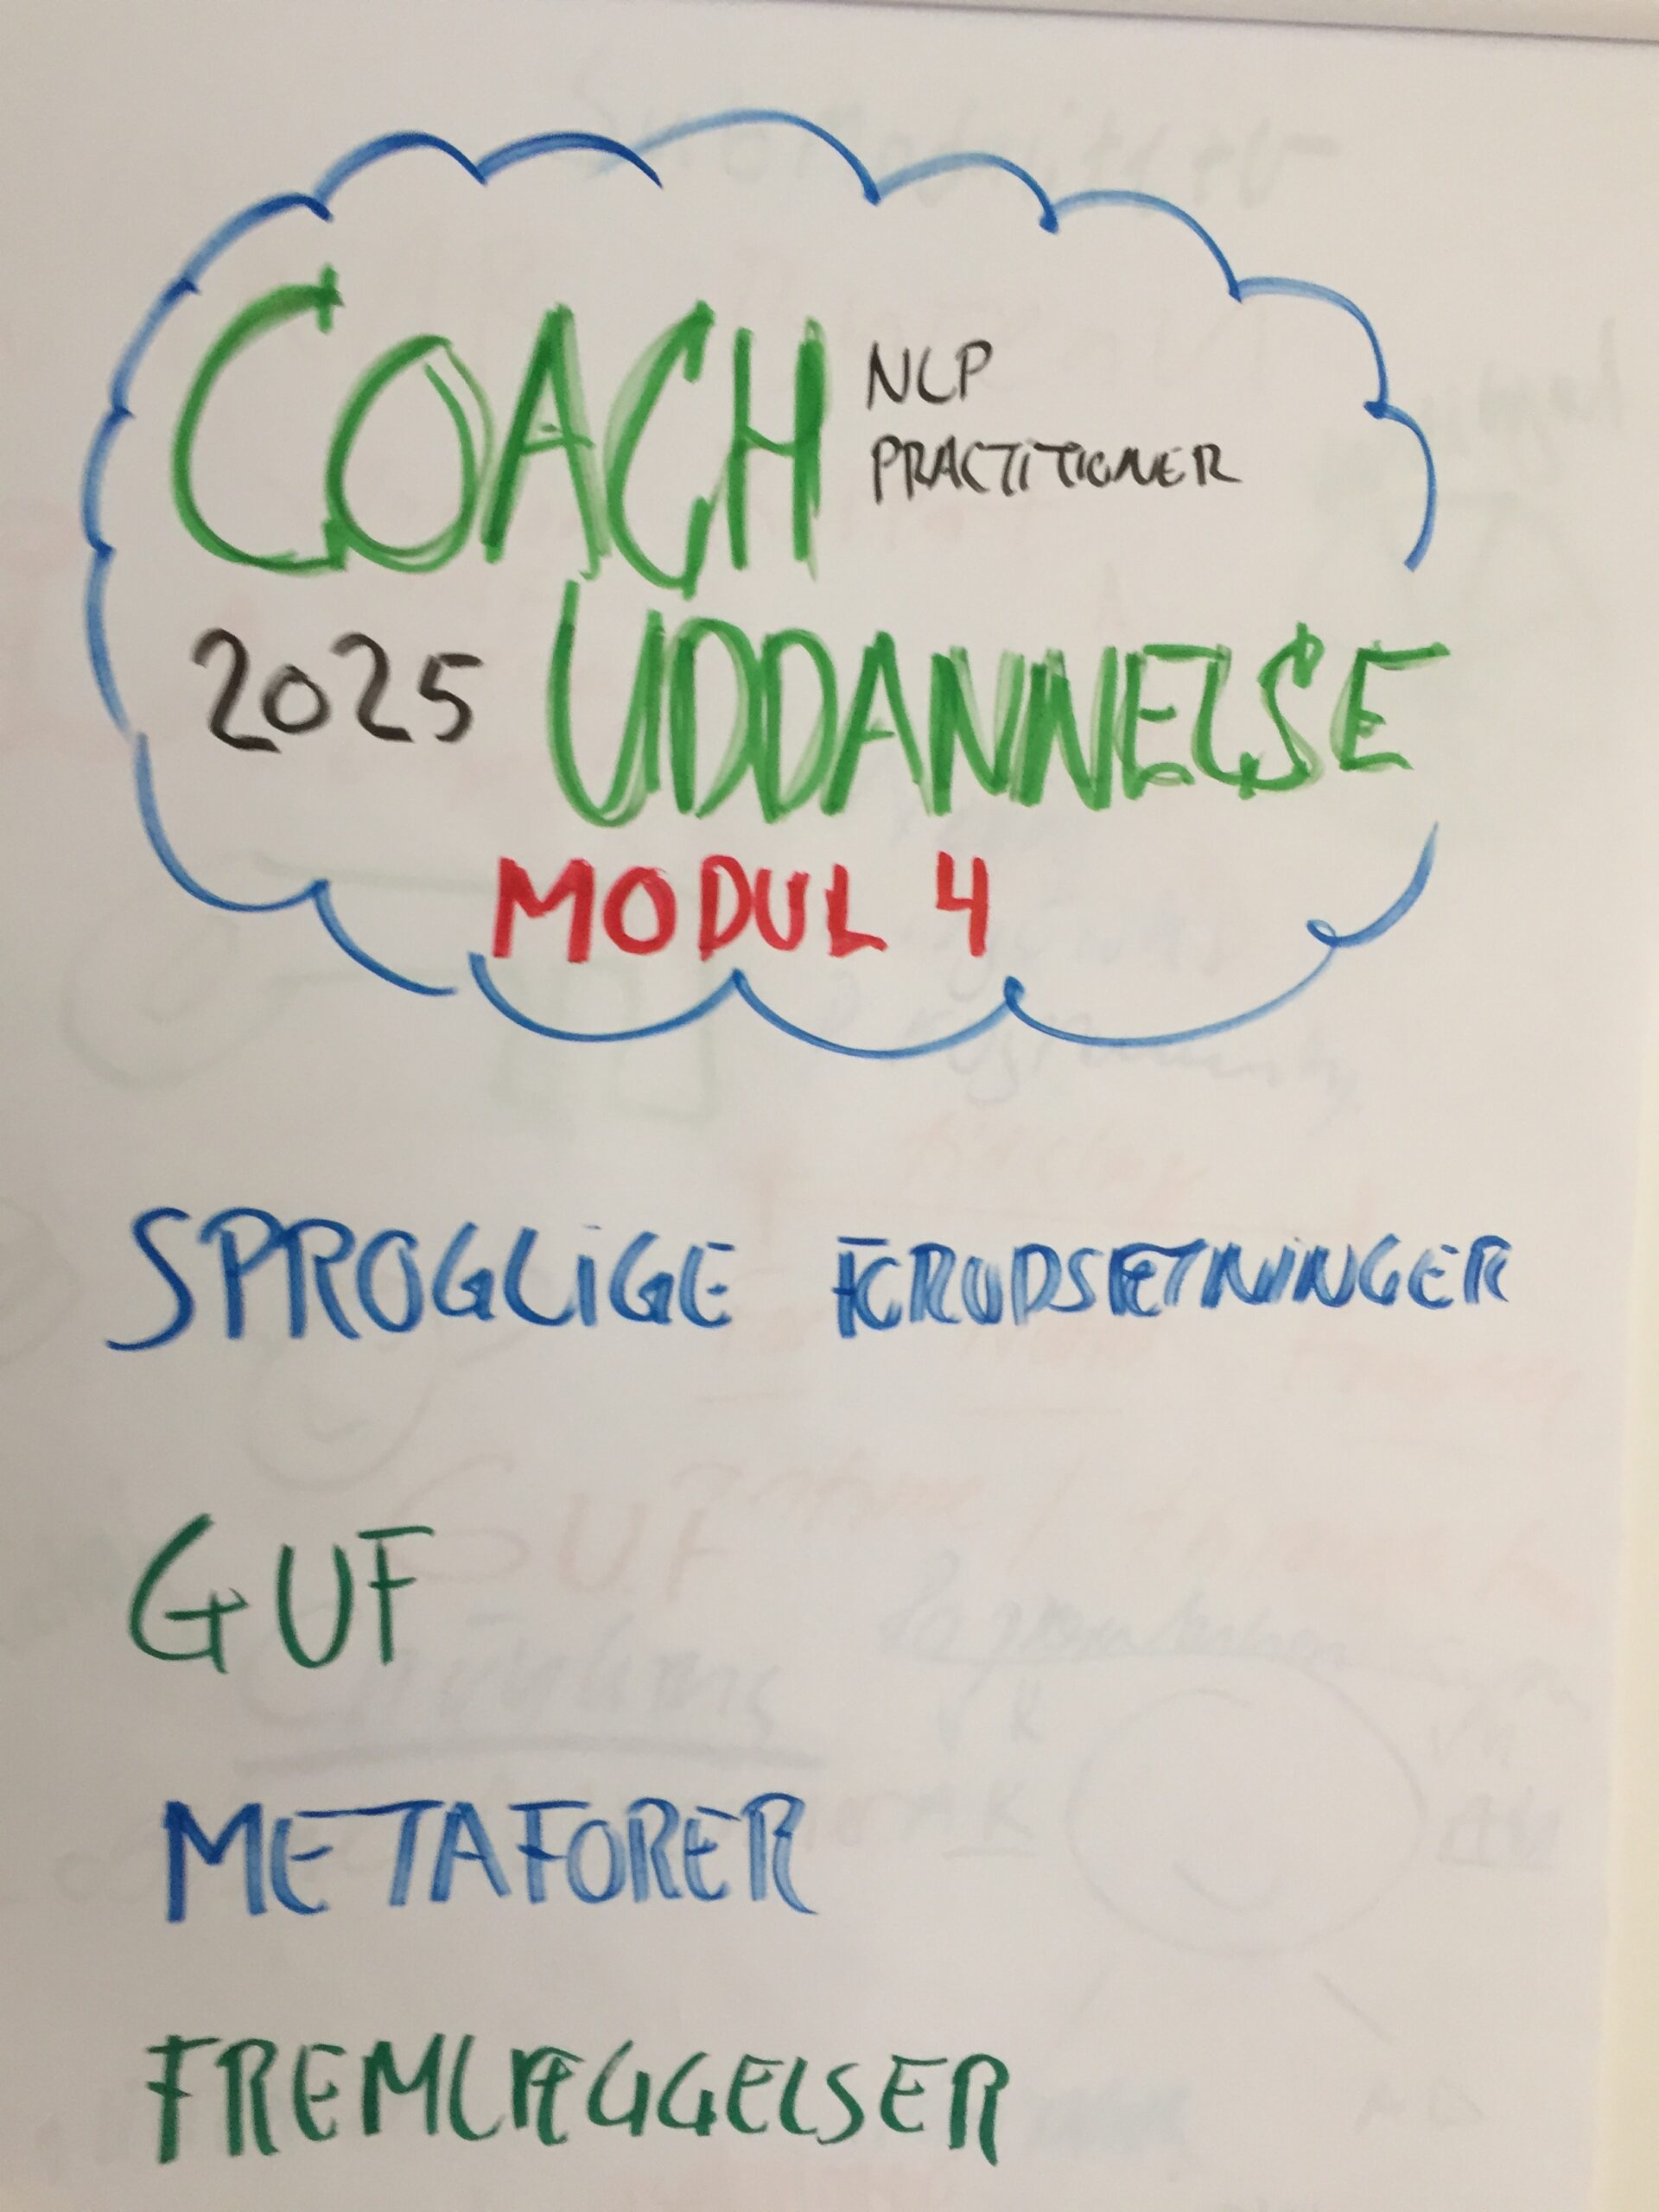 COACH NLP
PRACTITIONER
2025 UDDANNELSE
MODUL 4
SPROGLIGE FORUDSÆTNINGER
GUF
METAFORER
FREMLÆGGELSER